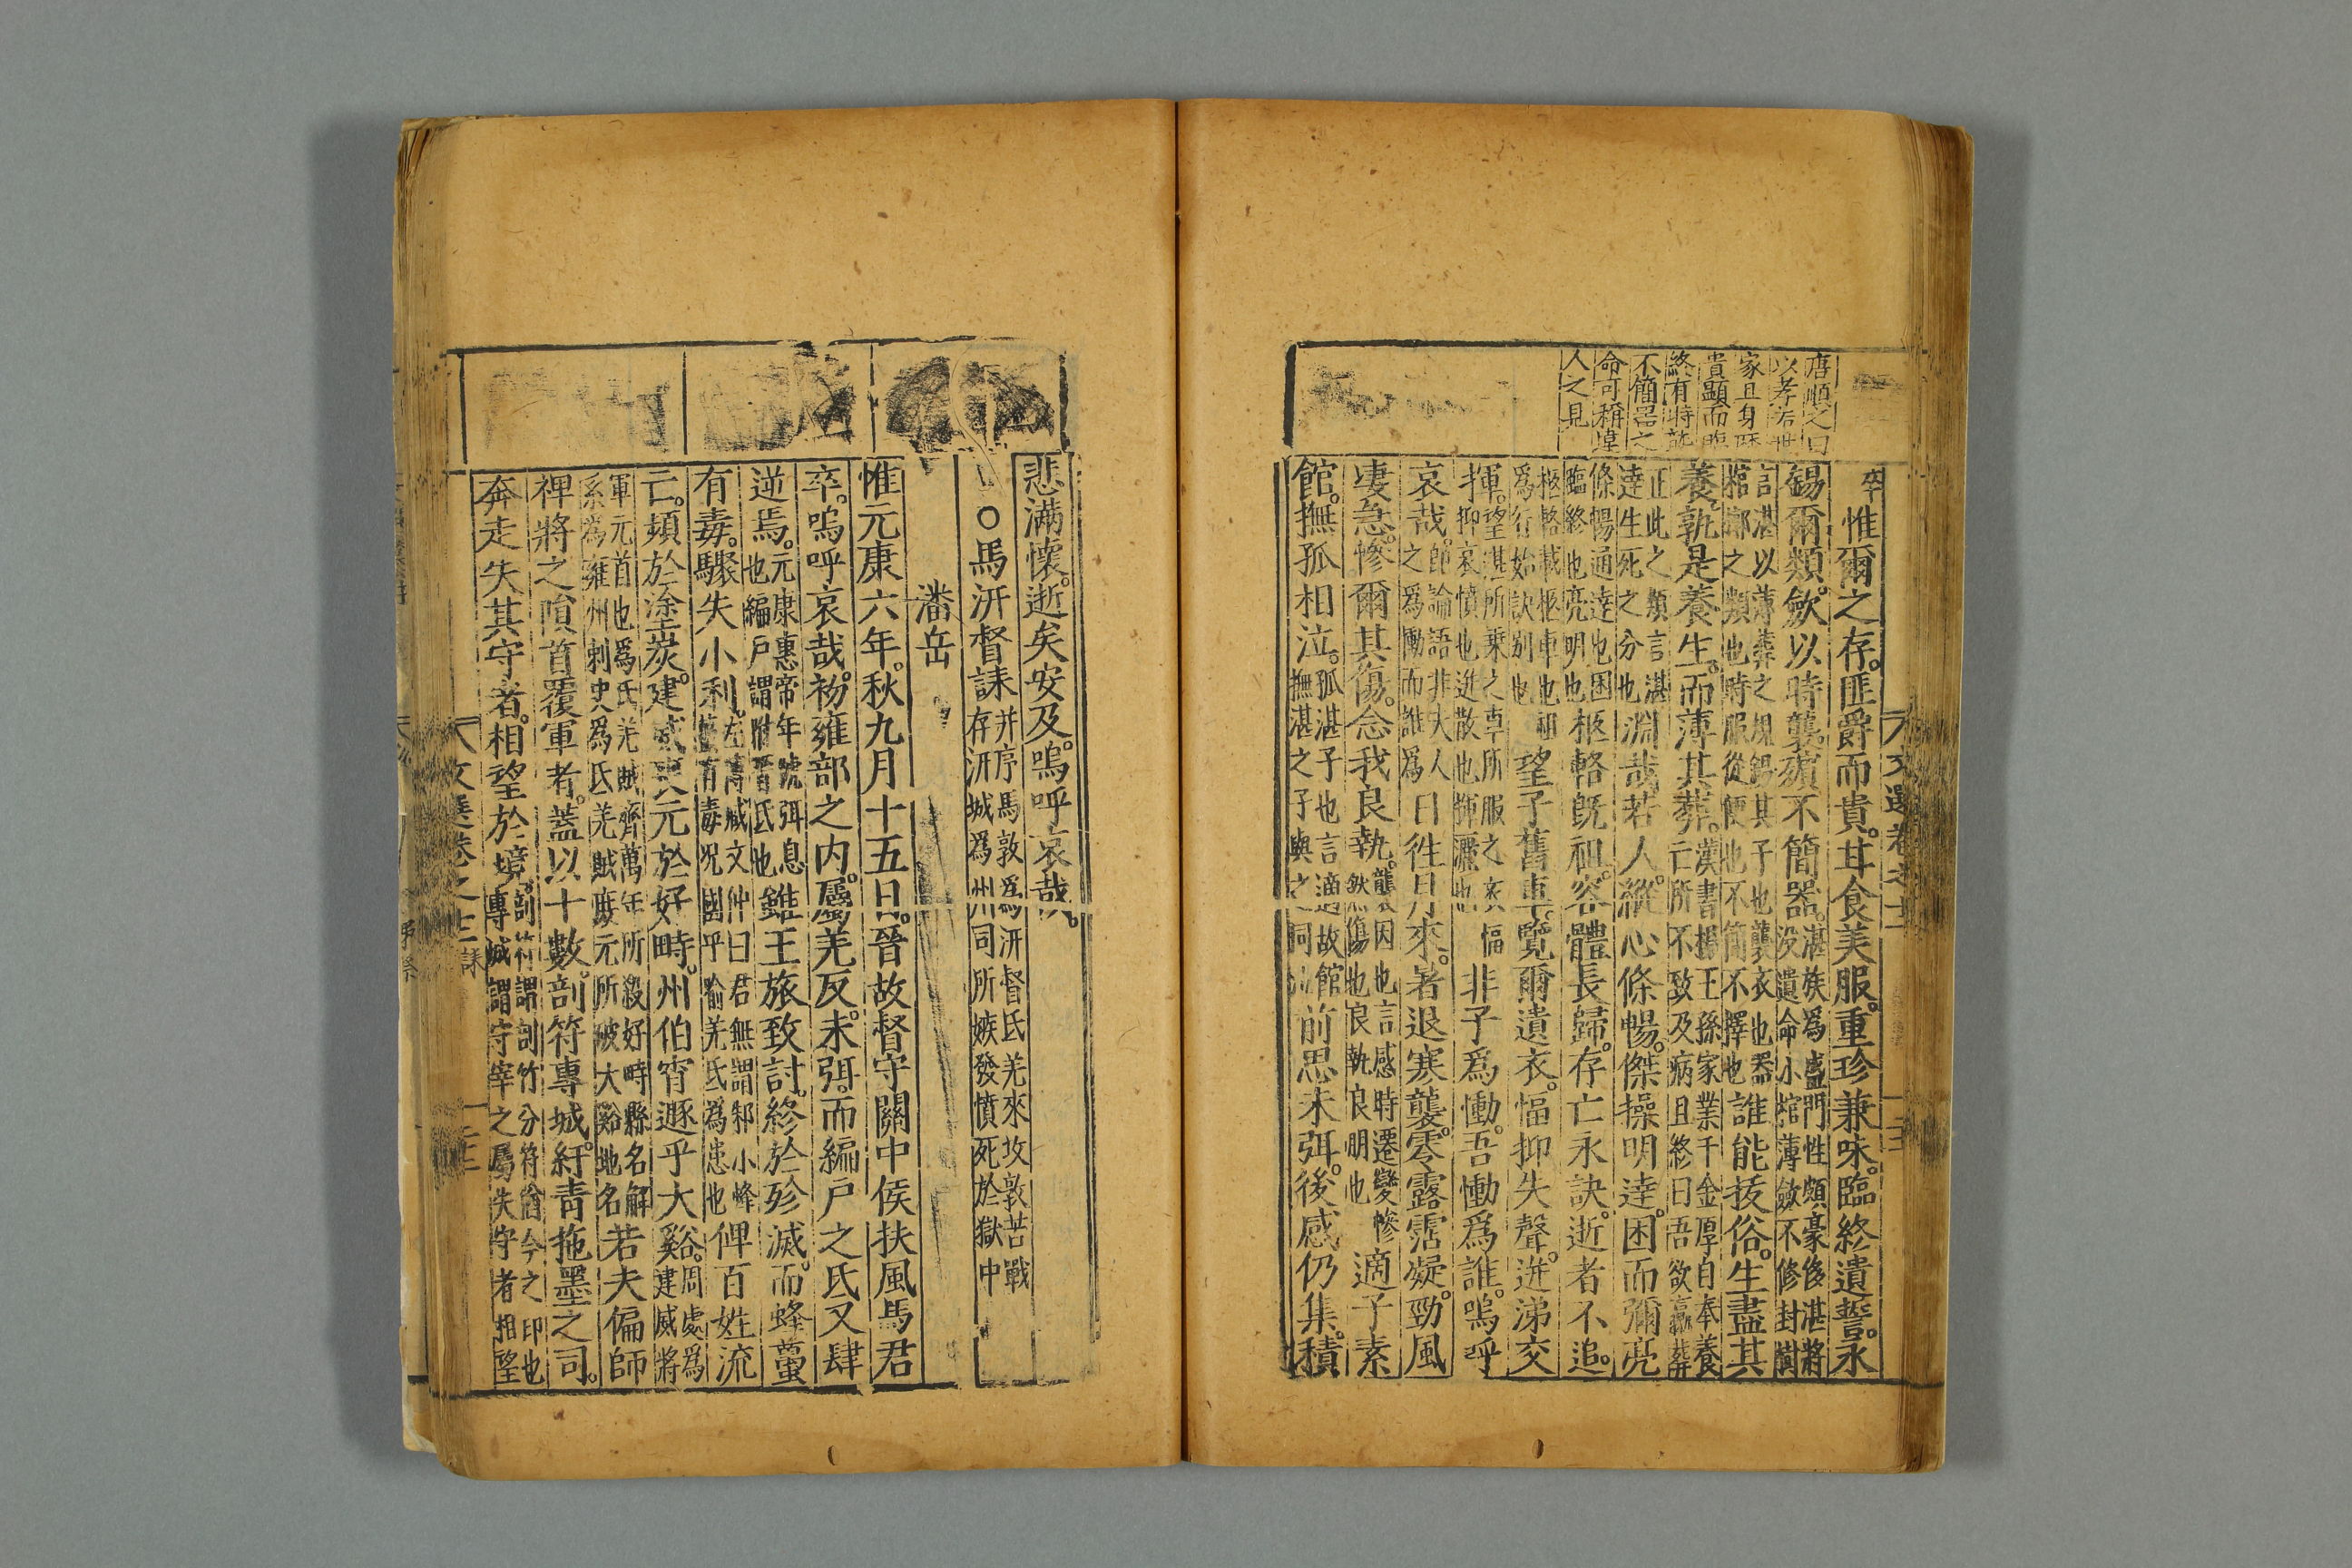 唐順之曰
以孝若世
家且身歴
貴顯而臨
終有時
不簡器之
命可稱達
人之見
卒
惟爾之存。匪爵而貴。甘食美服。重珍兼味。臨終遺誓。永
錫爾類。斂以時襲。殯不簡器。湛族爲盛門性頗豪侈湛將
没遺命小棺薄斂不修封樹
言湛以薄葬之規錫其子也襲衣也器
棺槨之類也時服從便也不簡不擇也誰能拔俗。生盡其
養。孰是養生。而薄其葬。漢書楊王孫家業千金厚自奉養
亡所不致及病且終曰吾欲臝葬
正此之類言湛
達生死之分也淵哉若人。縱心條暢。傑操明達。困而彌亮
條暢通達也困
臨終也亮明也柩輅旣祖。容體長歸。存亡永訣。逝者不追。
柩輅載柩車也祖
爲行始訣别也望子舊車。覽爾遺衣。愊抑失聲。迸涕交
揮。望湛所乗之車所服之衣愊
抑哀憤也迸散也揮灑也非子爲慟。吾慟爲誰。嗚呼
哀哉。師論語非夫人
之爲慟而誰爲日徃月來。暑退寒襲。零露霑凝。勁風
凄急。慘爾其傷。念我良執。襲因也言感時遷變慘
然傷也良執良朋也適子素
館。撫孤相泣。孤湛子也言適故館
撫湛之子與之同前思未弭。後感仍集。積
文選卷之十
悲滿懷。逝矣安及。嗚呼哀哉。
○馬汧督誄并序馬敦爲汧督氐羌來攻敦苦戰
存汧城爲州司所嫉發憤死於獄中
潘岳
惟元康六年。秋九月十五日。晉故督守關中侯扶風馬君
卒。嗚呼哀哉。初雍部之内。屬羌反。未弭。而編戶之氐又肆
逆焉。元康惠帝年號弭息
也編戶謂附晋氐也雖王旅致討。終於殄滅。而蜂蠆
有毒。驟失小利。左傳臧文仲曰君無謂邾小蜂
蠆有毒况國乎喻羌氐爲患也俾百姓流
亡。頻於塗炭。建威喪元於好畤。州伯宵遯乎大谿。周處爲
建威將
軍元首也爲氐羌賊齊萬年所殺好畤縣名解
系爲雍州刺史爲氐羌賊度元所破大谿地名若夫偏師
裨將之隕首覆軍者。蓋以十數。剖符專城。紆青拖墨之司。
奔走失其守者。相望於境。剖竹謂剖竹分符猶今之印也
專城謂守宰之屬失守者相望
文選卷之
誄